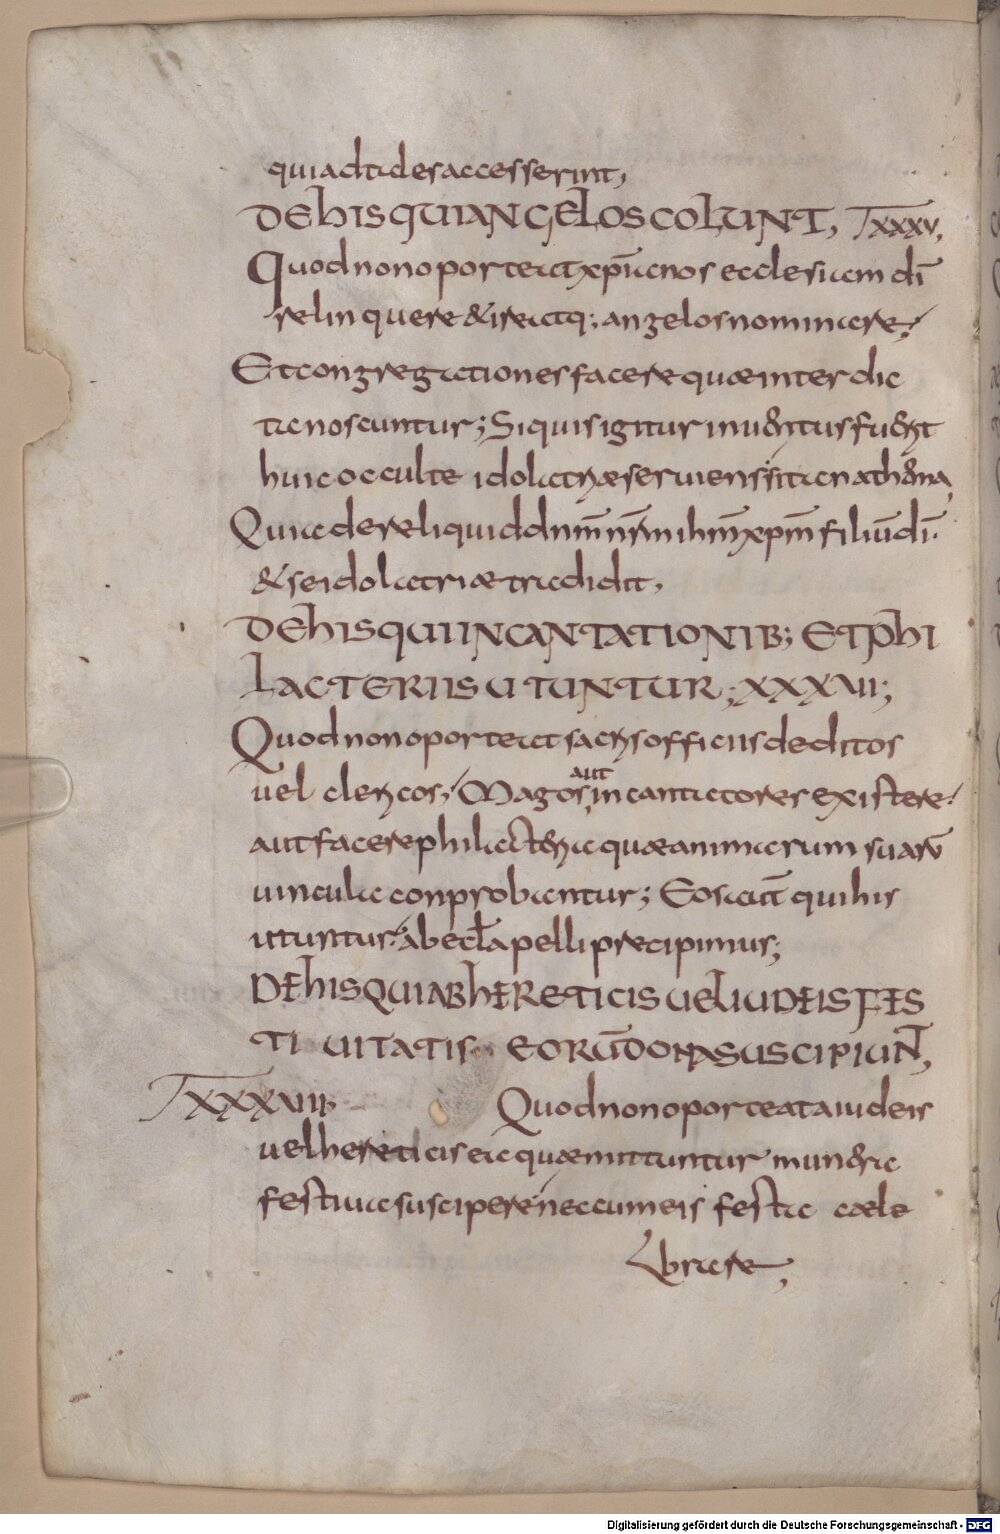 qui ad fides accesserint,
DE hIS QUI ANGELOS COLUNT, T XXXV,
Quod non oporteat xpianos ecclesiam dī
relinquere & ire atq; angelos nominare;
Et congregationes facere quæ interdic
ta noscuntur; Si quis igitur inuentus fuerit
huic occulte idolatriæ seruiens sit anathema,
Qui a dereliquid dnm̄ nr̄m ihm̄ xpm̄ filiū dī.
& se idolatriæ tradidit,
DE hIS QUI INCANTATIONIB; ET PhI
LACTERIIS UTUNTUR; XXXVII;
Quod non oporteat sacris officiis deditos
uel clericos; Magos aut incantatores existere;
aut facere philacteria quæ animarum suarū
uincula conprobantur; Eos aut̄ qui his
utuntur; ab eccl̄a pelli precipimus;
DE hIS QUI AB hERETICIS UEL IUDEIS FES
TIUITATIS EORŪ DONA SUSCIPIUNT,
T XXXVIII Quod non oporteat a iudeis
uel hereticis ea quæ mittuntur munera
festiua suscipere nec cum eis festa cæle
brare,
Digitalisierung gefördert durch die Deutsche Forschungsgemeinschaft - DFG